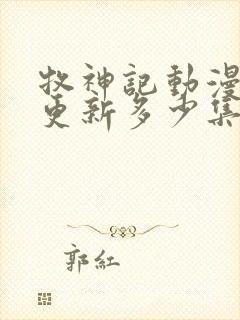 牧神記動漫
更新多少集
郭紅